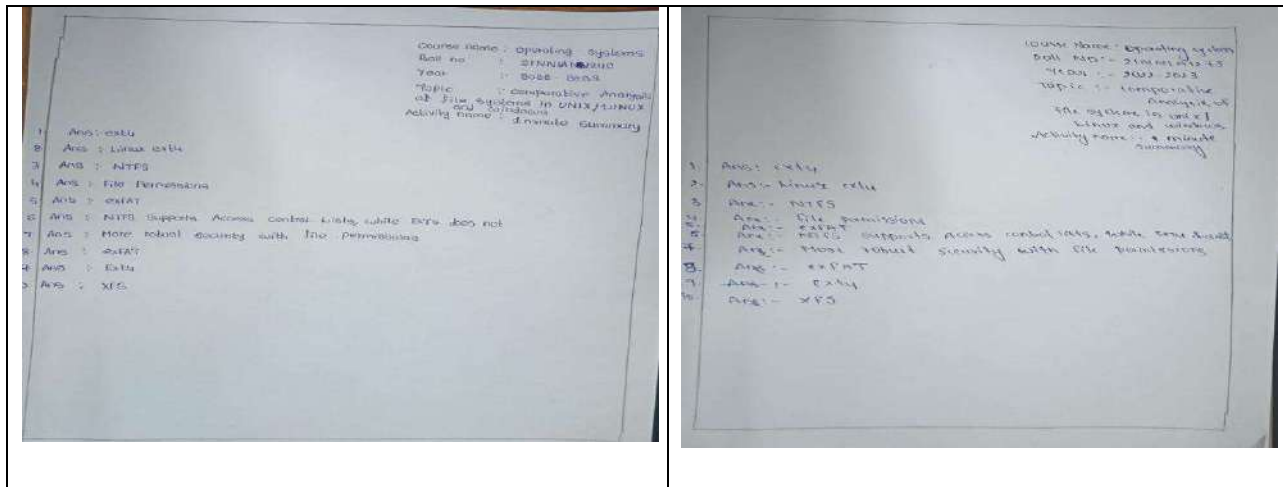 Course name : Operating Systems
Roll no :
Year :
Topic : Comparative Analysis
of file systems in UNIX/LINUX
and windows
Activity name : Summary
1 Ans : ext4
2 Ans : Linux ext4
3 Ans : NTFS
4 Ans : File Permissions
5 Ans : exFAT
6 Ans : NTFS Supports Access control Lists, while Ext4 does not
7 Ans : More robust security with file permissions
8 Ans : exFAT
Ans : Ext4
Ans : XFS
Course Name : Operating system
Roll NO :-
Year :- 2022-2023
Topic :- comparative
Analysis of
file systems in unix/
Linux and windows
Activity name :- minute
summary
1. Ans : ext4
2. Ans :- Linux ext4
3 Ans :- NTFS
4 Ans :- file permissions
5. Ans :- exFAT
Ans :- NTFS supports Access control lists, while
7. Ans :- More robust security with file permissions
8. Ans :- exFAT
9 Ans :- Ext4
10. Ans :- XFS